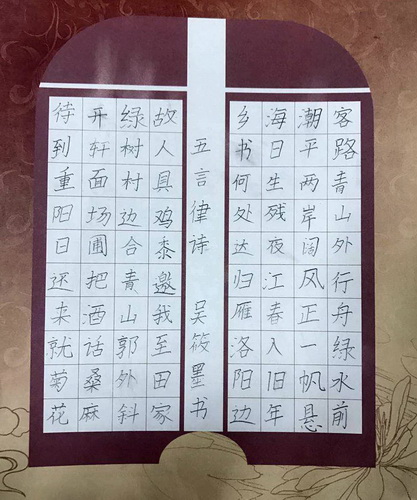 客路青山外行舟绿水前
潮平两岸阔风正一帆悬
海日生残夜江春入旧年
乡书何处达归雁洛阳边
五言律诗 吴筱墨书
故人具鸡黍邀我至田家
绿树村边合青山郭外斜
开轩面场圃把酒话桑麻
待到重阳日还来就菊花